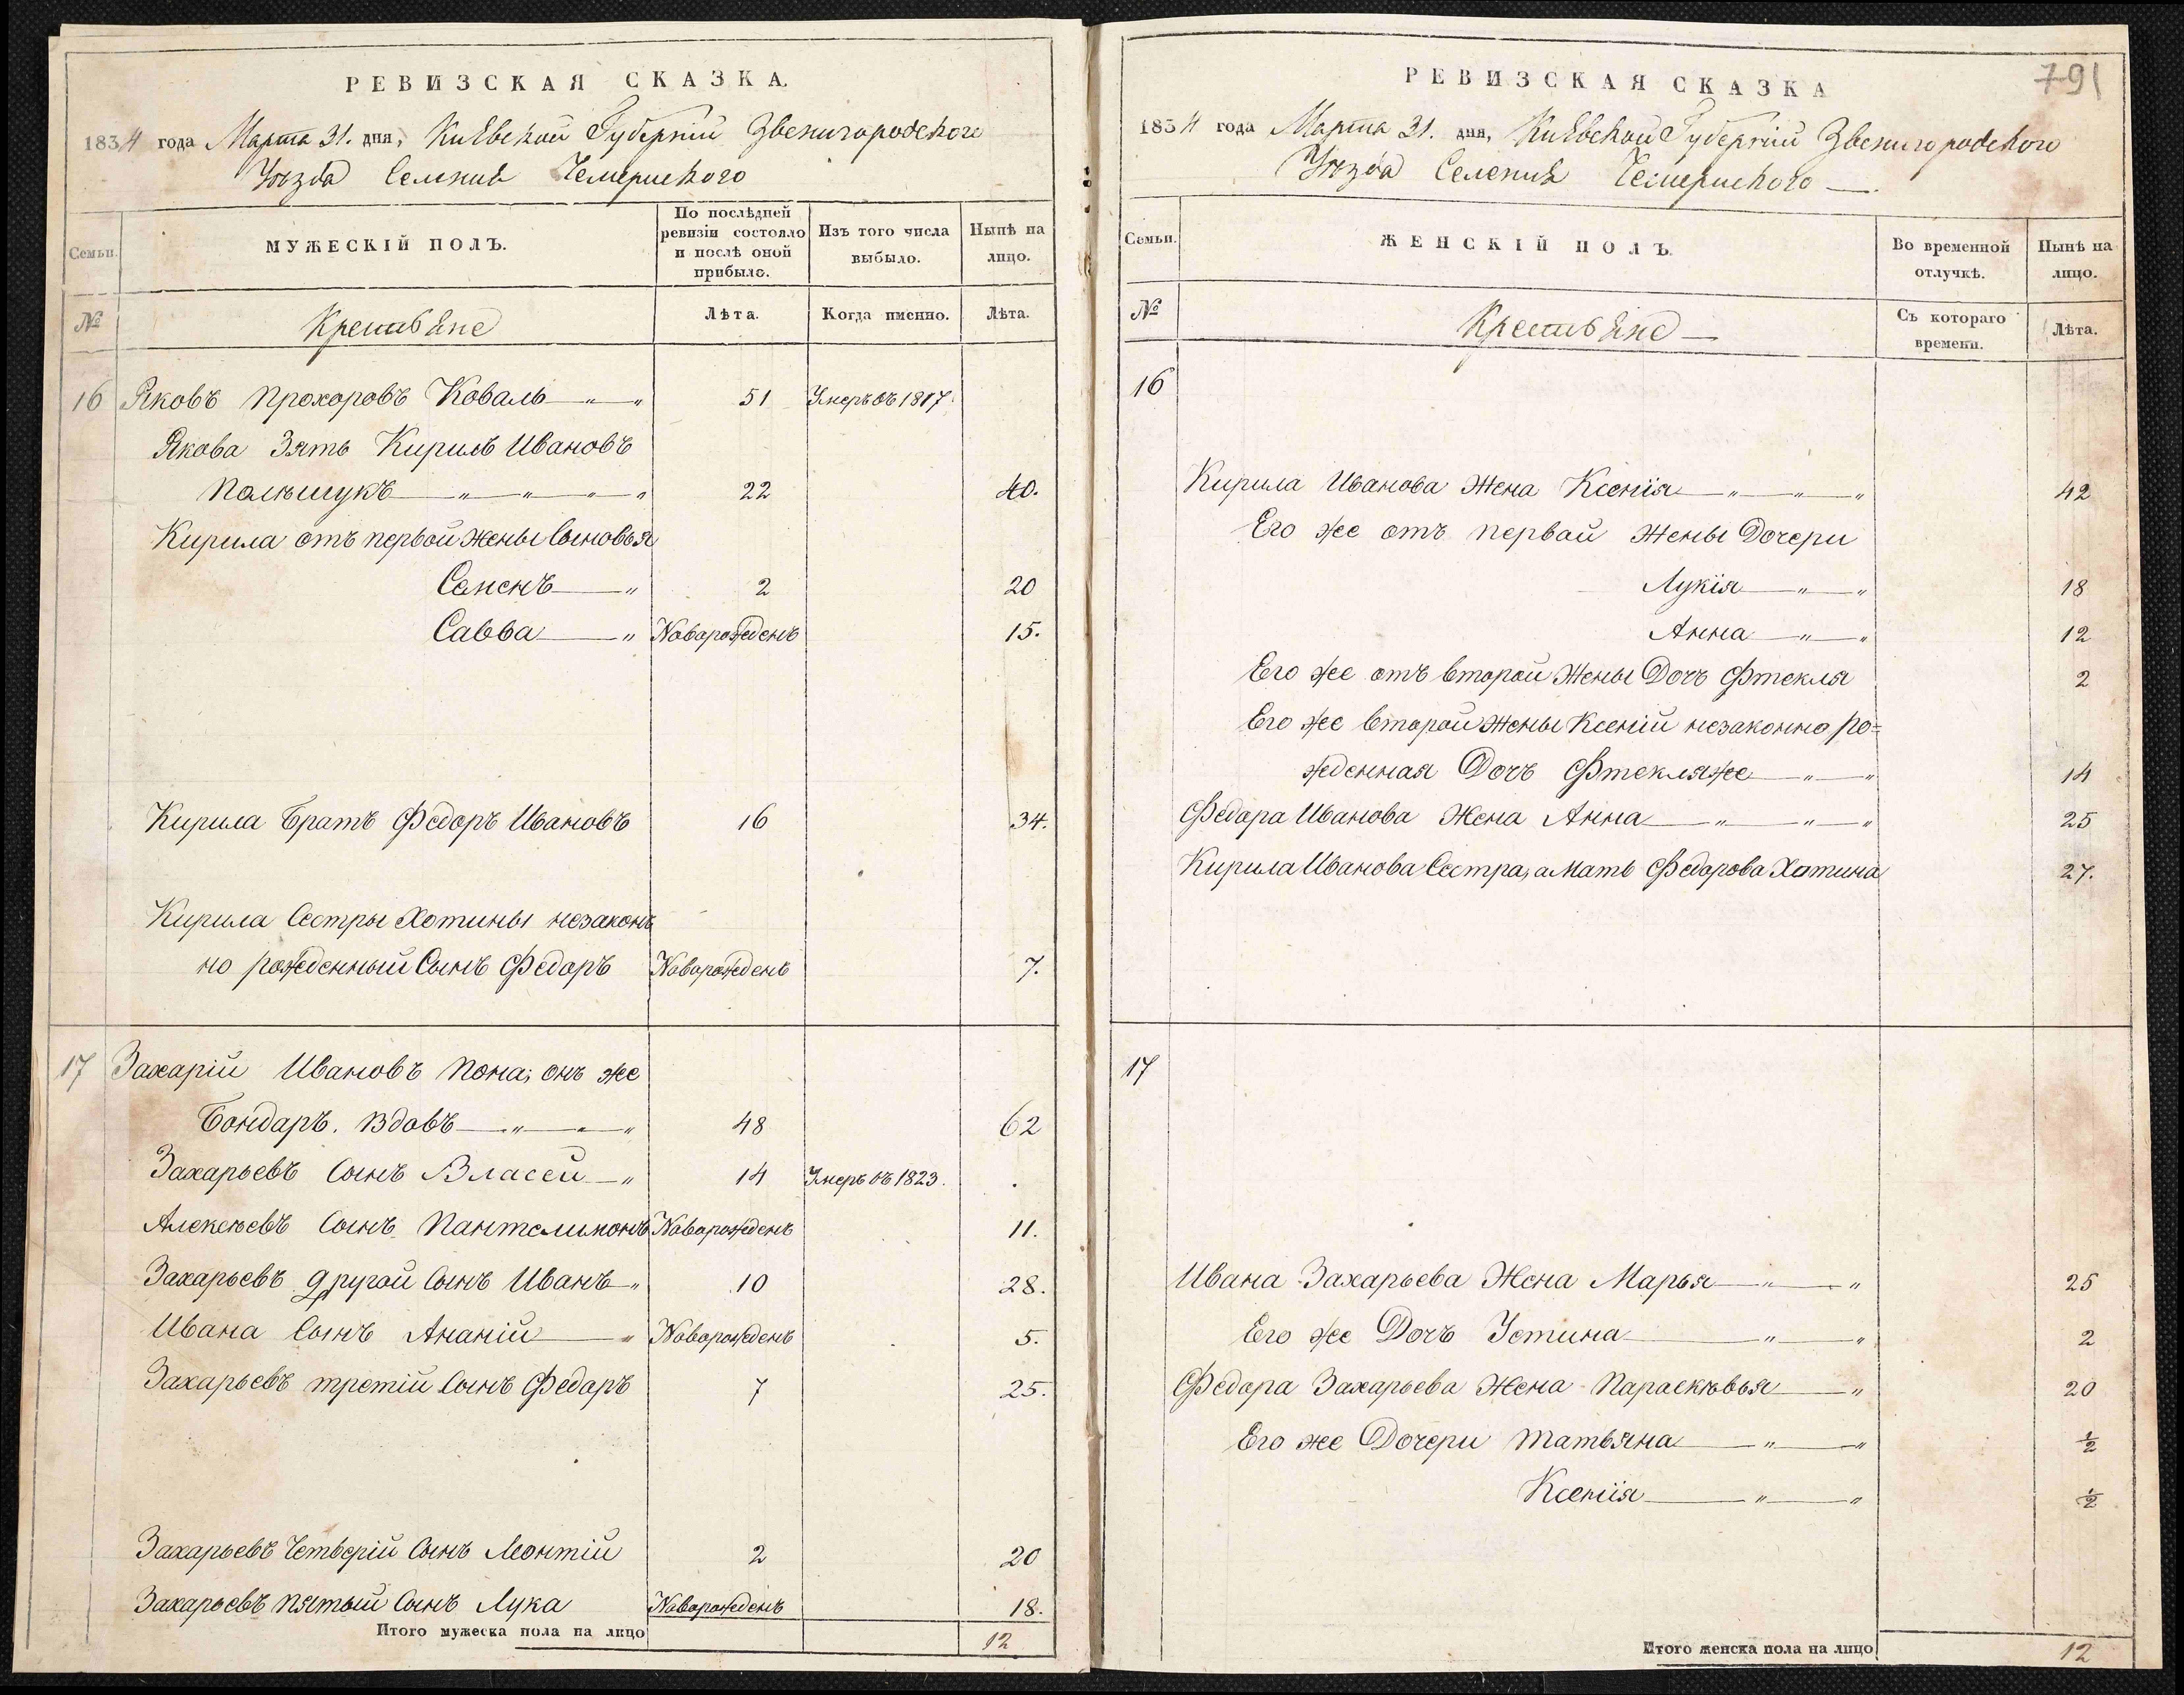 РЕВИЗСКАЯ СКАЗКА.
1834 года Марта 31. дня, Киевской Губерніи Звенигородского
Уѣзда Селения Чемериского
Семьи.
МУЖЕСКІЙ ПОЛЪ.
По послѣдней ревизіи состояло и послѣ оной прибыло.
Изъ того числа выбыло.
Нынѣ на лицо.
№
Крестьяне
Лѣта.
Когда именно.
Лѣта.
16 Яковъ Прохоровъ Коваль 51 Умеръ въ 1817.
Якова Зять Кирилъ Ивановъ
Полѣщукъ 22 40.
Кирила отъ первой жены Сыновья
Семенъ 2 20
Савва Новорожденъ 15.
Кирила Братъ Федоръ Ивановъ 16 34.
Кирила Сестры Хотины незакон
но рожденный Сынъ Федоръ Новорожденъ 7.
17 Захарій Ивановъ Попа; онъ же
Бондаръ. Вдовъ 48 62
Захарьевъ Сынъ Власей 14 Умеръ въ 1823.
Алексѣевъ Сынъ Пантелимонъ Новорожденъ 11.
Захарьевъ другой Сынъ Иванъ 10 28.
Ивана Сынъ Ананій Новорожденъ 5.
Захарьевъ третій Сынъ Федоръ 7 25.
Захарьевъ Четверій Сынъ Леонтій 2 20
Захарьевъ пятый Сынъ Лука Новорожденъ 18.
Итого мужеска пола на лицо 12
791
РЕВИЗСКАЯ СКАЗКА
1834 года Марта 31. дня, Киевской Губерніи Звенигородского
Уѣзда Селения Чемериского
Семьи.
ЖЕНСКІЙ ПОЛЪ.
Во временной отлучкѣ.
Нынѣ на лицо.
№
Крестьяне
Съ котораго времени.
Лѣта.
16
Кирила Иванова Жена Ксенія 42
Его же отъ первой жены Дочери
Лукія 18
Анна 12
Его же отъ второй жены Дочъ Фтекля 2
Его же второй жены Ксеніи незаконно ро=
жденная Дочъ Фтекля же 14
Федора Иванова Жена Анна 25
Кирила Иванова Сестра, а Мать Федорова Хотина 27.
17
Ивана Захарьева Жена Марья 25
Его же Дочъ Устина 2
Федора Захарьева Жена Параскѣвья 20
Его же Дочери Татьяна ½
Ксенія ½
Итого женска пола на лицо 12